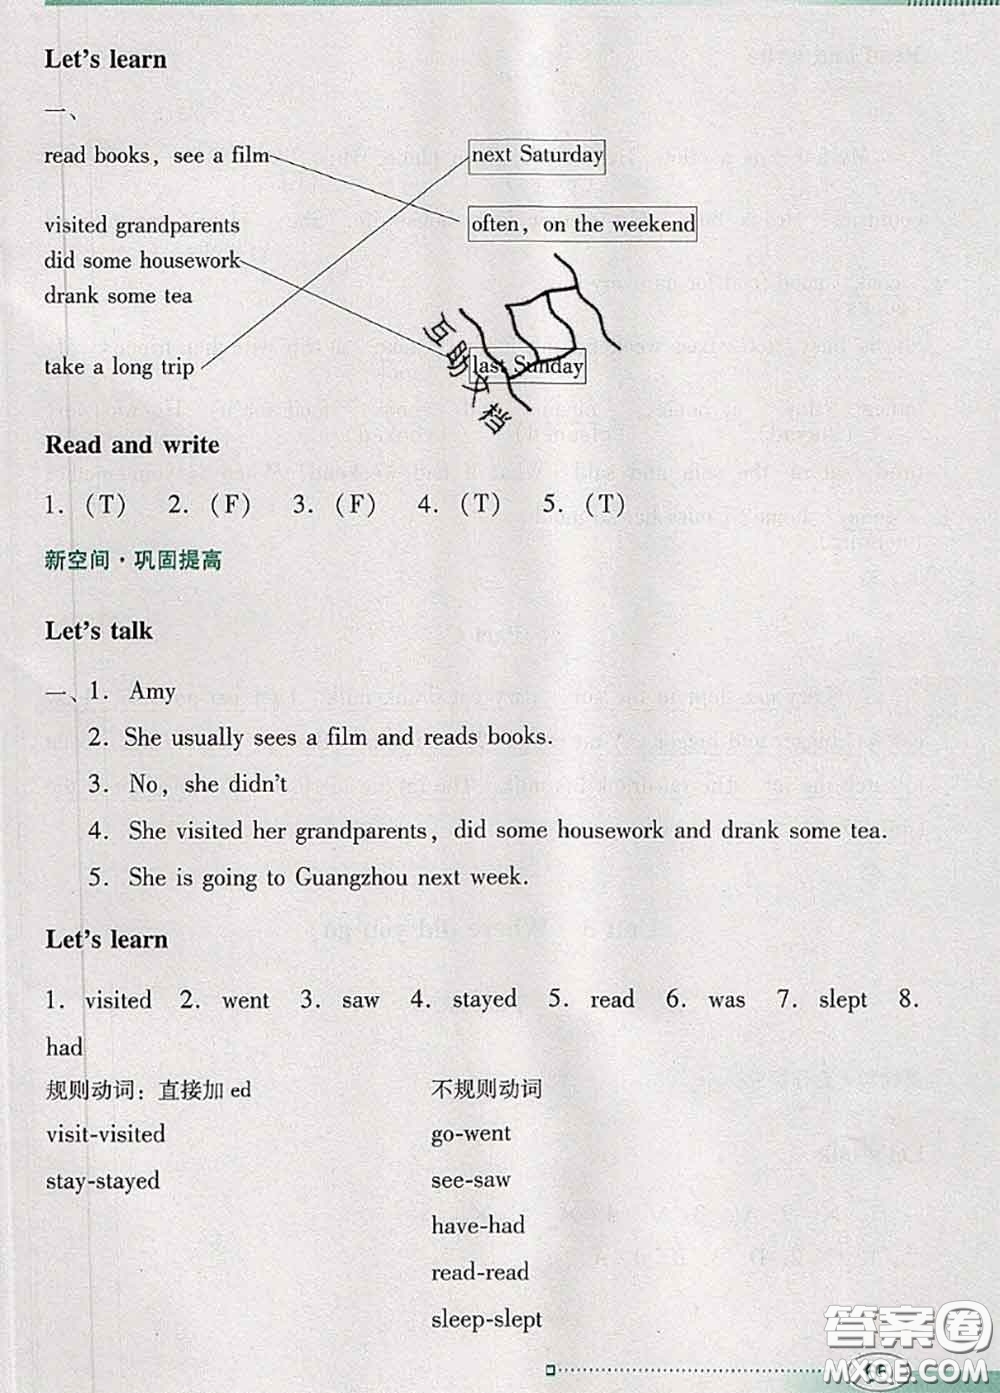 Let's learn
一、
read books, see a film
next Saturday
visited grandparents
often, on the weekend
did some housework
drank some tea
take a long trip
last Sunday
互助文档
Read and write
1. (T) 2. (F) 3. (F) 4. (T) 5. (T)
新空间·巩固提高
Let's talk
一、1. Amy
2. She usually sees a film and reads books.
3. No, she didn't
4. She visited her grandparents, did some housework and drank some tea.
5. She is going to Guangzhou next week.
Let's learn
1. visited 2. went 3. saw 4. stayed 5. read 6. was 7. slept 8.
had
规则动词：直接加 ed
不规则动词
visit-visited
go-went
stay-stayed
see-saw
have-had
read-read
sleep-slept
答案圈
MXQE.COM